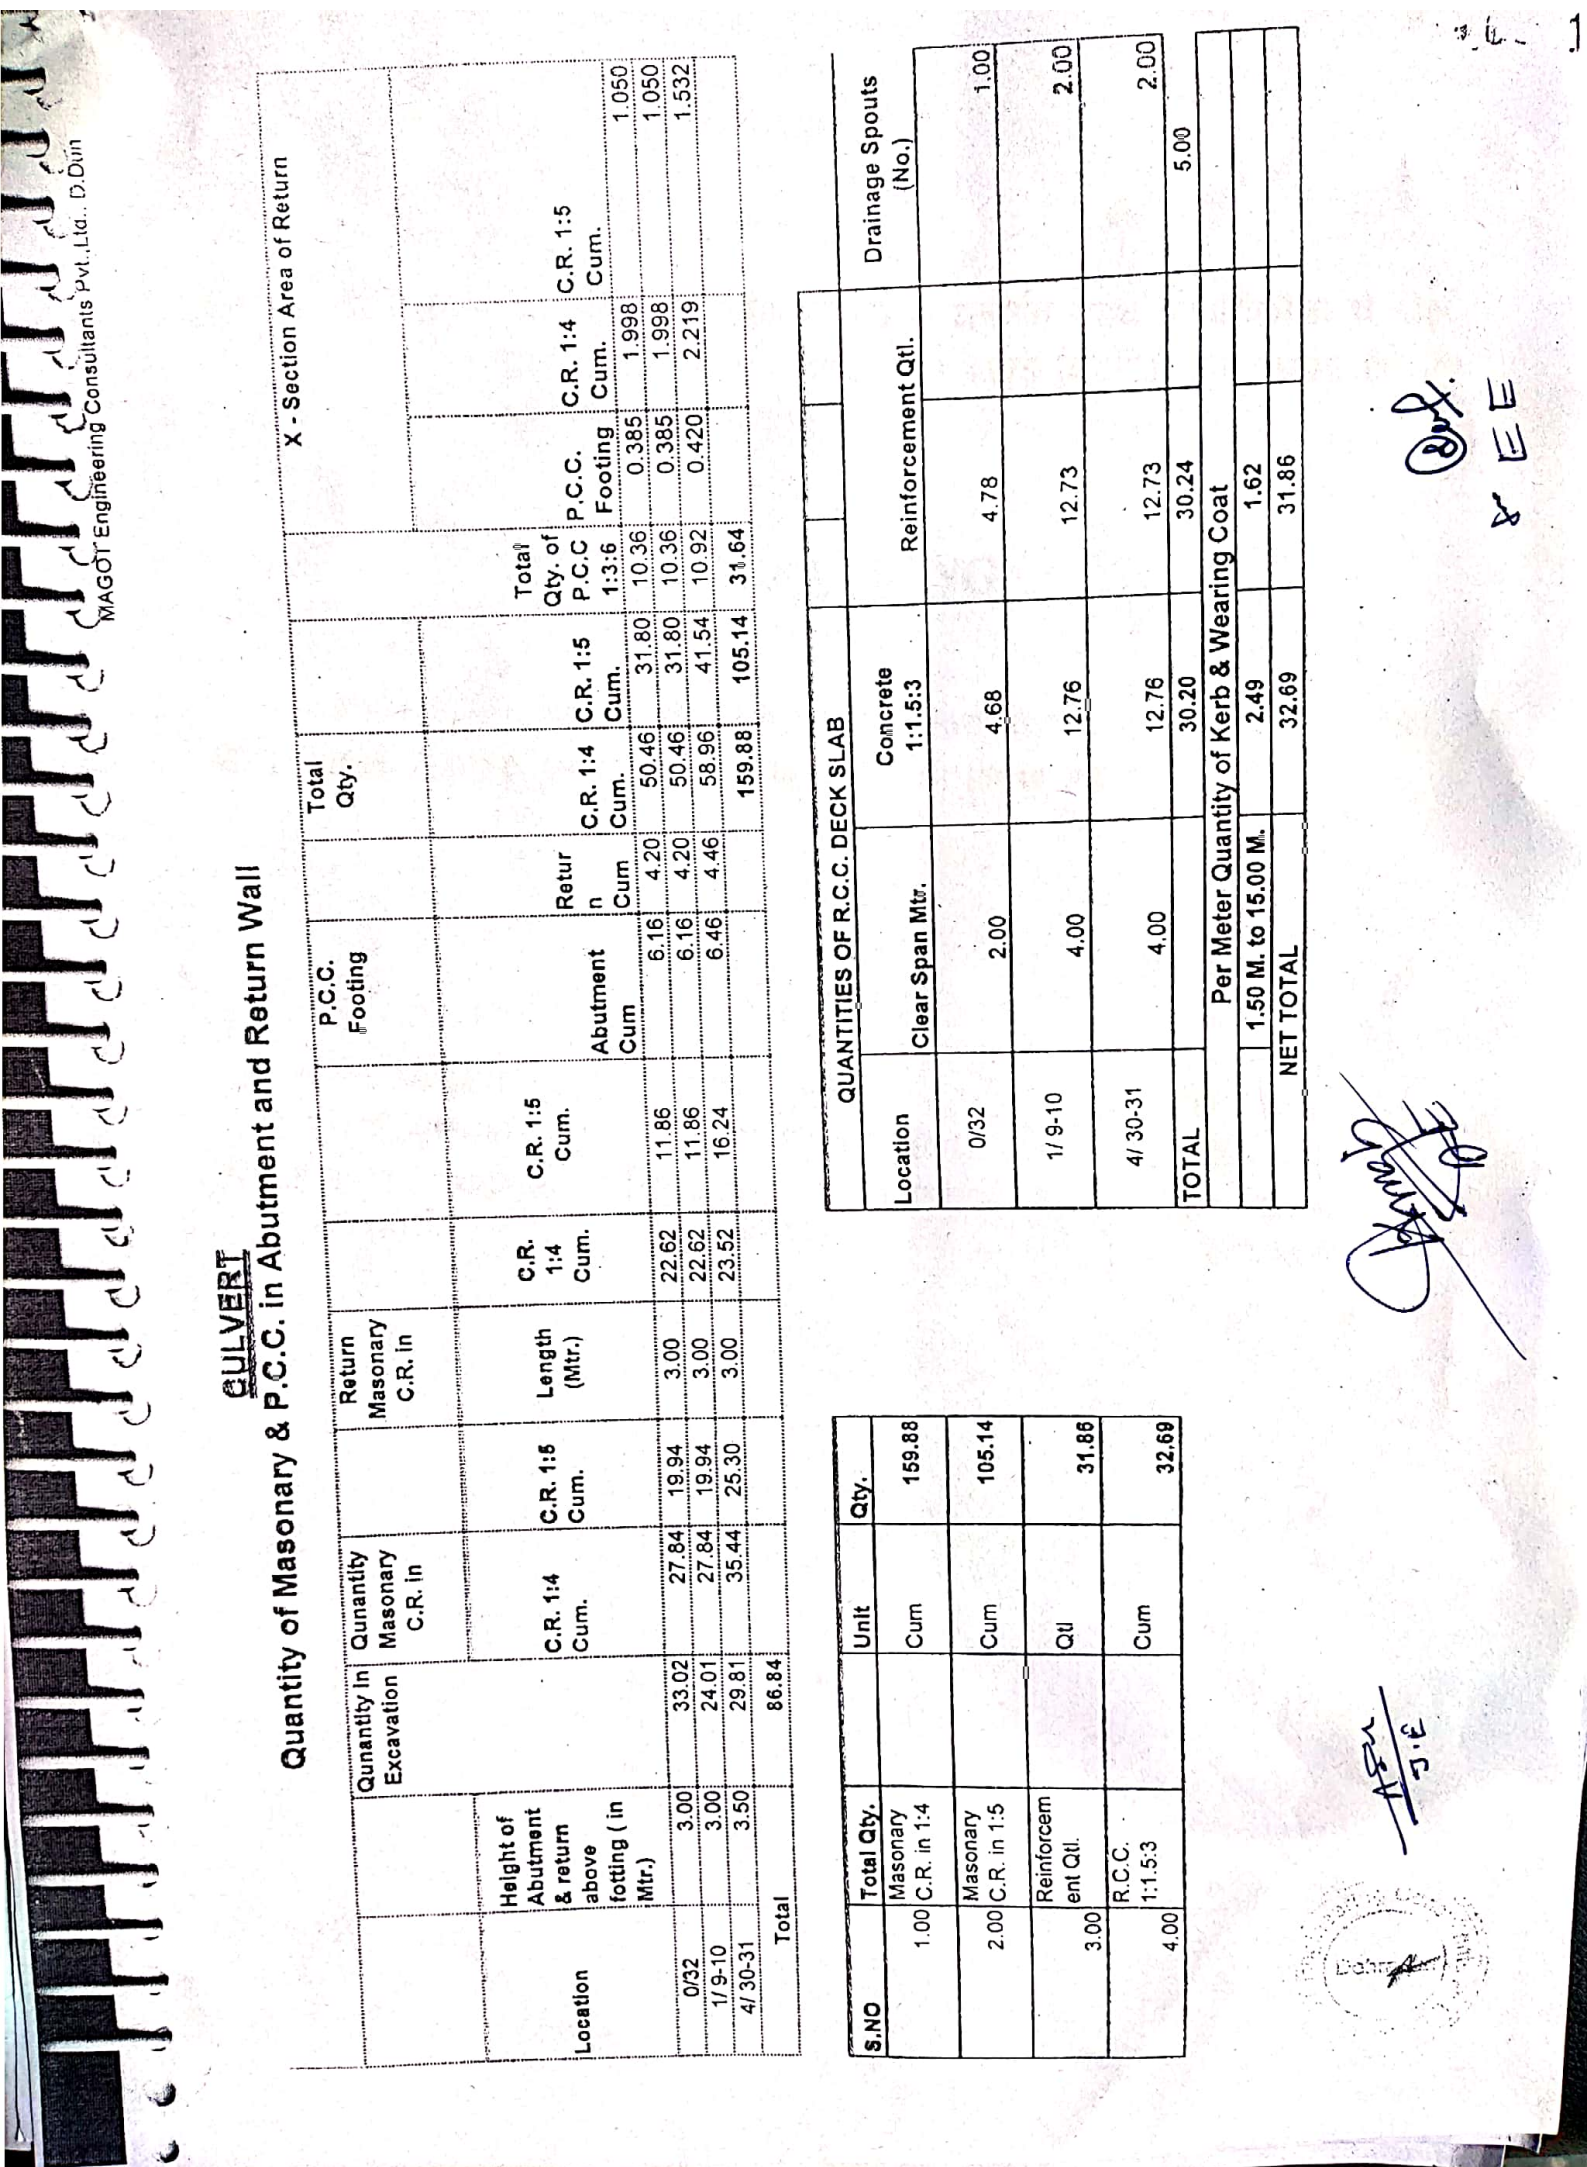 MAGOT Engineering Consultants Pvt.,Ltd.. D.Dun
CULVERT
Quantity of Masonary & P.C.C. in Abutment and Return Wall
Qunantity in Excavation Qunantity Masonary C.R. in Return Masonary C.R. in P.C.C. Footing Total Qty. X - Section Area of Return
Location Height of Abutment & return above fotting ( in Mtr.) C.R. 1:4 Cum. C.R. 1:5 Cum. Length (Mtr.) C.R. 1:4 Cum. C.R. 1:5 Cum. Abutment Cum Retur n Cum C.R. 1:4 Cum. C.R. 1:5 Cum. Total Qty. of P.C.C 1:3:6 P.C.C. Footing C.R. 1:4 Cum. C.R. 1:5 Cum.
0/32 3.00 33.02 27.84 19.94 3.00 22.62 11.86 6.16 4.20 50.46 31.80 10.36 0.385 1.998 1.050
1/ 9-10 3.00 24.01 27.84 19.94 3.00 22.62 11.86 6.16 4.20 50.46 31.80 10.36 0.385 1.998 1.050
4/ 30-31 3.50 29.81 35.44 25.30 3.00 23.52 16.24 6.46 4.46 58.96 41.54 10.92 0.420 2.219 1.532
Total 86.84 159.88 105.14 31.64
S.NO Total Qty. Unit Qty.
1.00 Masonary C.R. in 1:4 Cum 159.88
2.00 Masonary C.R. in 1:5 Cum 105.14
3.00 Reinforcem ent Qtl. Qtl 31.86
4.00 R.C.C. 1:1.5:3 Cum 32.69
QUANTITIES OF R.C.C. DECK SLAB
Location Clear Span Mtr. Concrete 1:1.5:3 Reinforcement Qtl. Drainage Spouts (No.)
0/32 2.00 4.68 4.78 1.00
1/ 9-10 4.00 12.76 12.73 2.00
4/ 30-31 4.00 12.76 12.73 2.00
TOTAL 30.20 30.24 5.00
Per Meter Quantity of Kerb & Wearing Coat
1.50 M. to 15.00 M. 2.49 1.62
NET TOTAL 32.69 31.86
J.E
EE